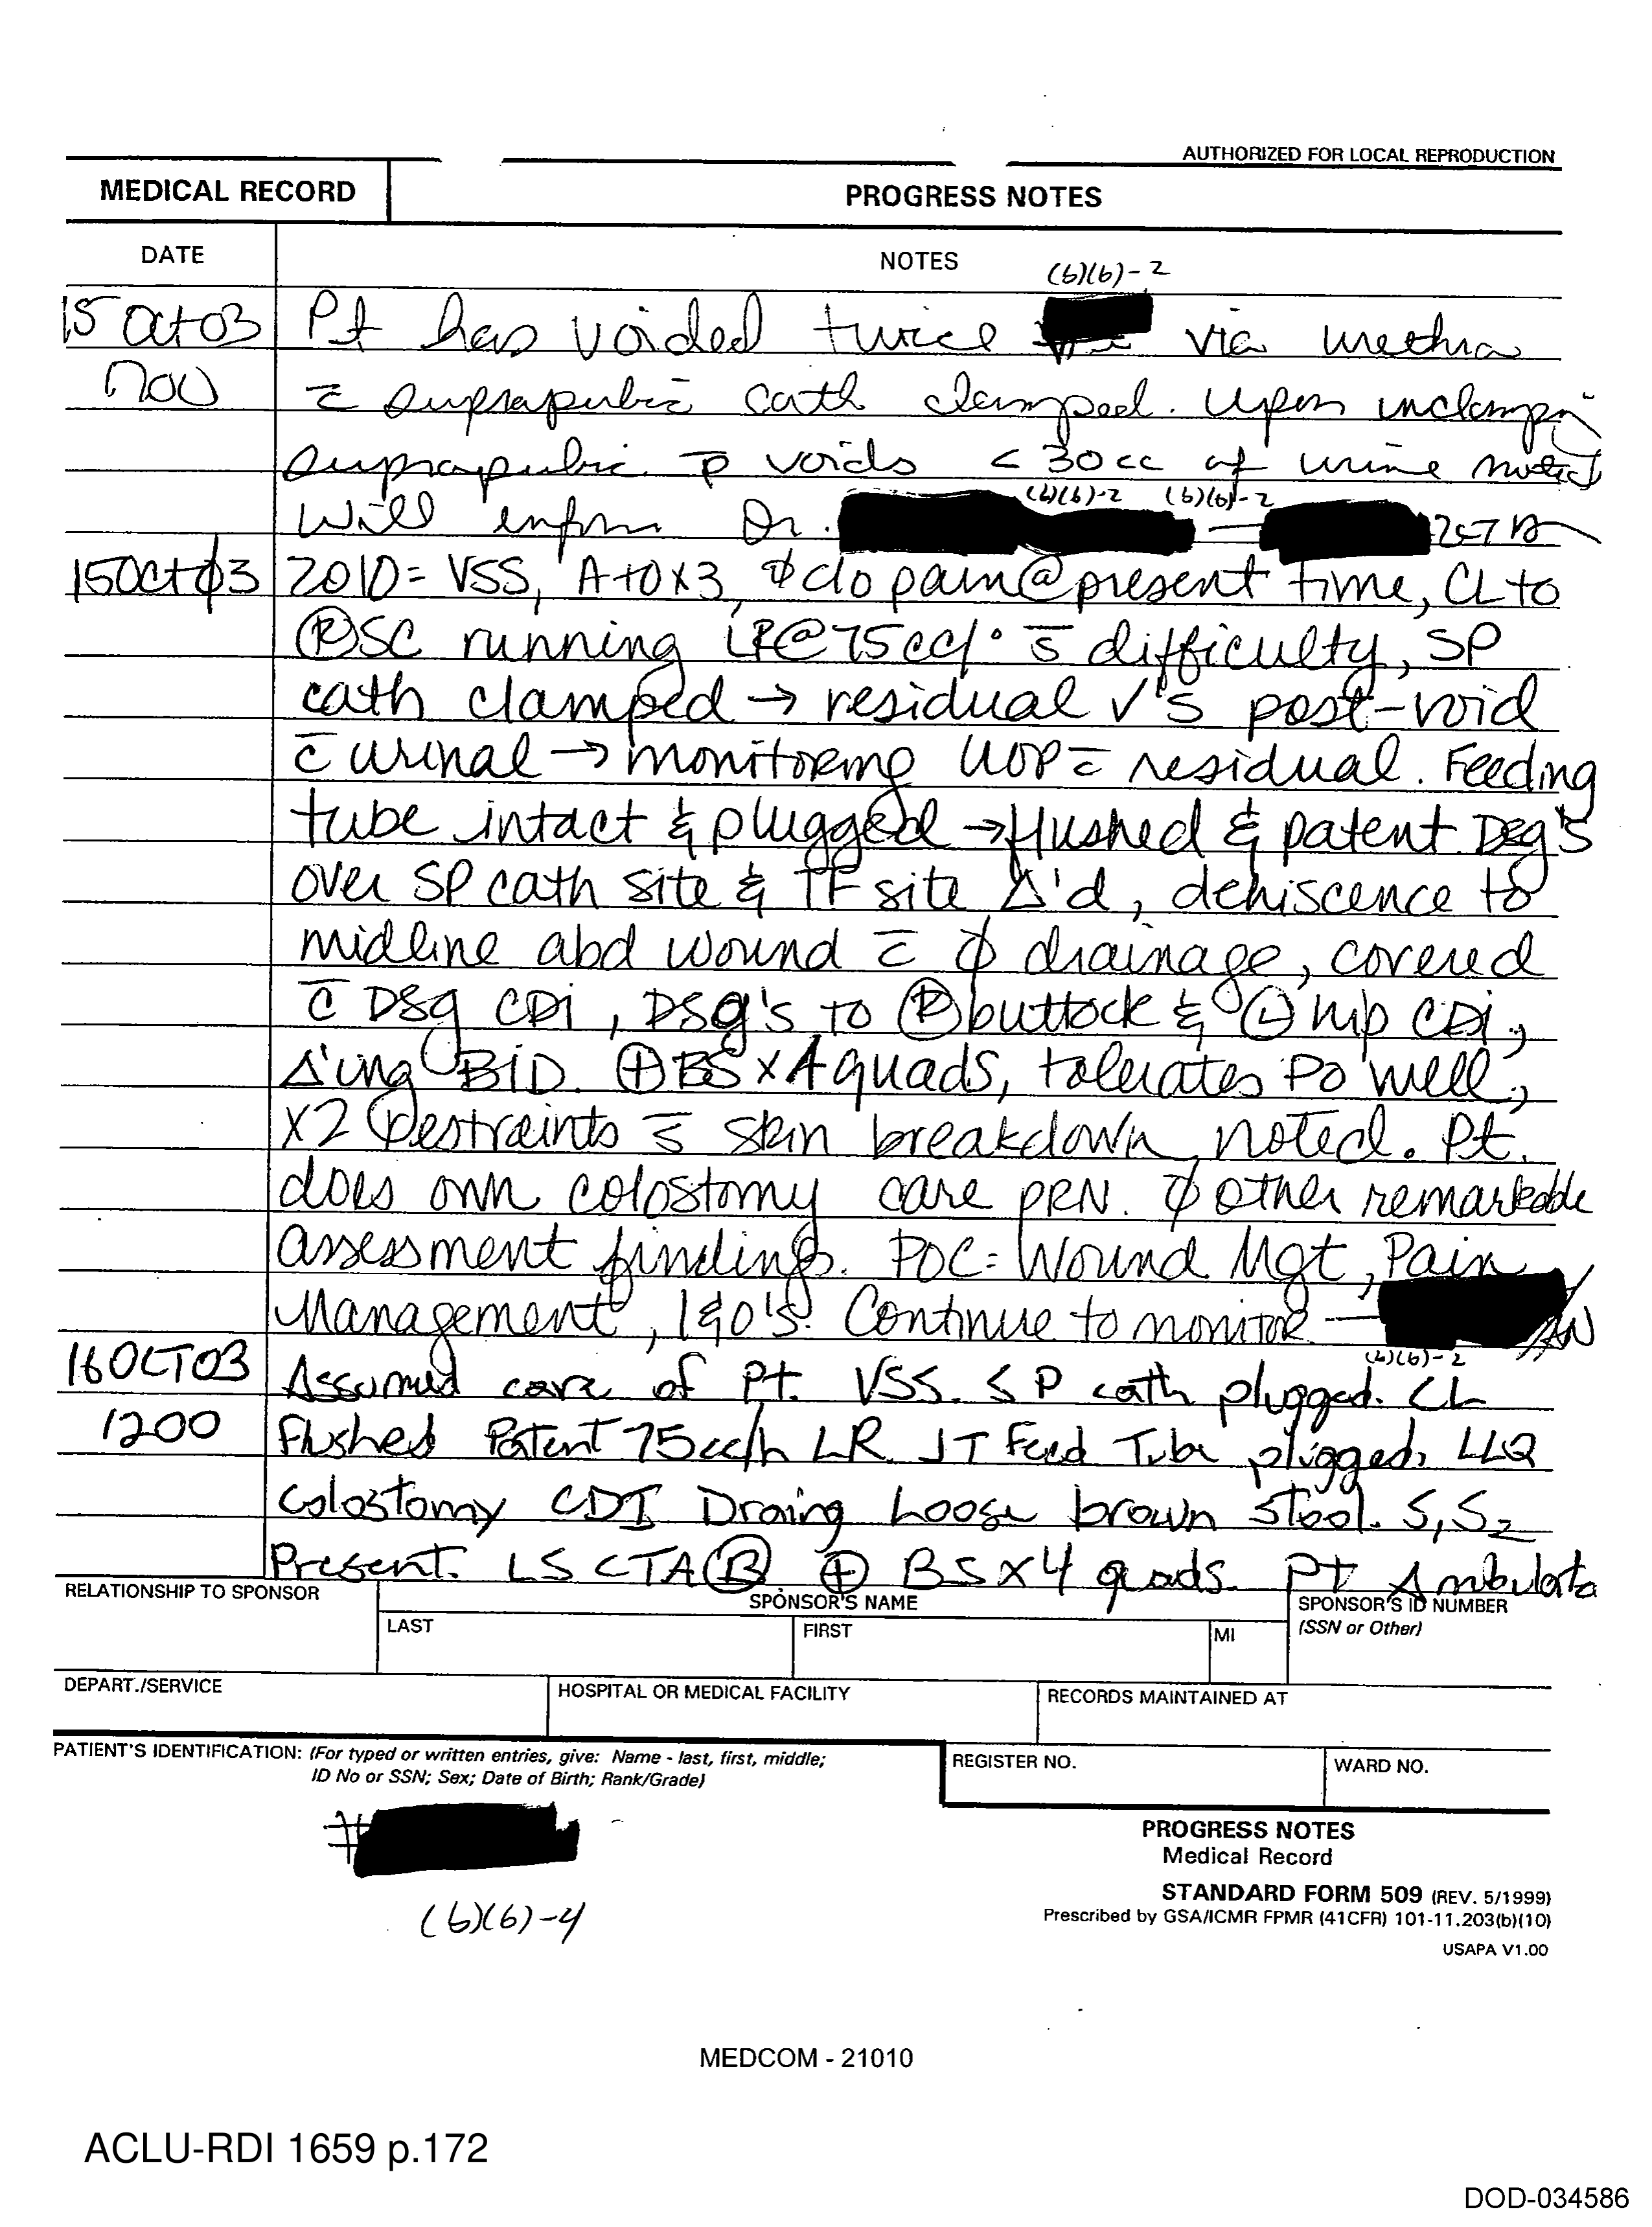 AUTHORIZED FOR LOCAL REPRODUCTION
MEDICAL RECORD PROGRESS NOTES
DATE NOTES
(b)(6)-2
15 Oct 03 Pt has voided twice via urethra
1700 c̄ suprapubic cath clamped. Upon unclamping
suprapubic p̄ voids < 30cc of urine noted
(b)(6)-2 (b)(6)-2
Will inform Dr.
15Oct03 2010= VSS, A+Ox3, ∅ c/o pain @ present time, CL to
Ⓡ SC running LR @ 75cc/° s̄ difficulty, SP
cath clamped → residual √'s post-void
c̄ urinal → monitoring UOP c̄ residual. Feeding
tube intact & plugged → flushed & patent Dsg's
over SP cath site & TF site Δ'd, dehiscence to
midline abd wound c̄ ∅ drainage, covered
c̄ Dsg CDI, Dsg's to Ⓡ buttock & Ⓛ hip CDI,
Δ'ing BID. ⊕ BS x 4 quads, tolerates PO well,
x2 restraints s̄ skin breakdown noted. Pt.
does own colostomy care PRN. ∅ other remarkable
assessment findings. POC= Wound Mgt, Pain
Management, I&O's. Continue to monitor — /AN
(b)(6)-2
16OCT03 Assumed care of Pt. VSS. SP cath plugged. CL
1200 Flushed Patent 75cc/h LR JT Feed Tube plugged. LLQ
Colostomy CDI Draing Loose brown stool. S1S2
Present. LS CTA Ⓑ ⊕ BS x 4 quads. Pt Ambulata
RELATIONSHIP TO SPONSOR SPONSOR'S NAME SPONSOR'S ID NUMBER
LAST FIRST MI (SSN or Other)
DEPART./SERVICE HOSPITAL OR MEDICAL FACILITY RECORDS MAINTAINED AT
PATIENT'S IDENTIFICATION: (For typed or written entries, give: Name - last, first, middle;
ID No or SSN; Sex; Date of Birth; Rank/Grade)
REGISTER NO. WARD NO.
#
(b)(6)-4
PROGRESS NOTES
Medical Record
STANDARD FORM 509 (REV. 5/1999)
Prescribed by GSA/ICMR FPMR (41CFR) 101-11.203(b)(10)
USAPA V1.00
MEDCOM - 21010
ACLU-RDI 1659 p.172
DOD-034586